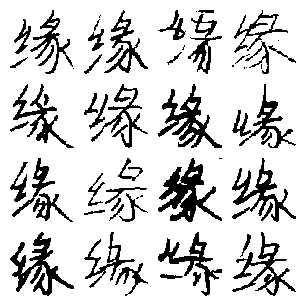 缘缘缘缘
缘缘缘缘
缘缘缘缘
缘缘缘缘